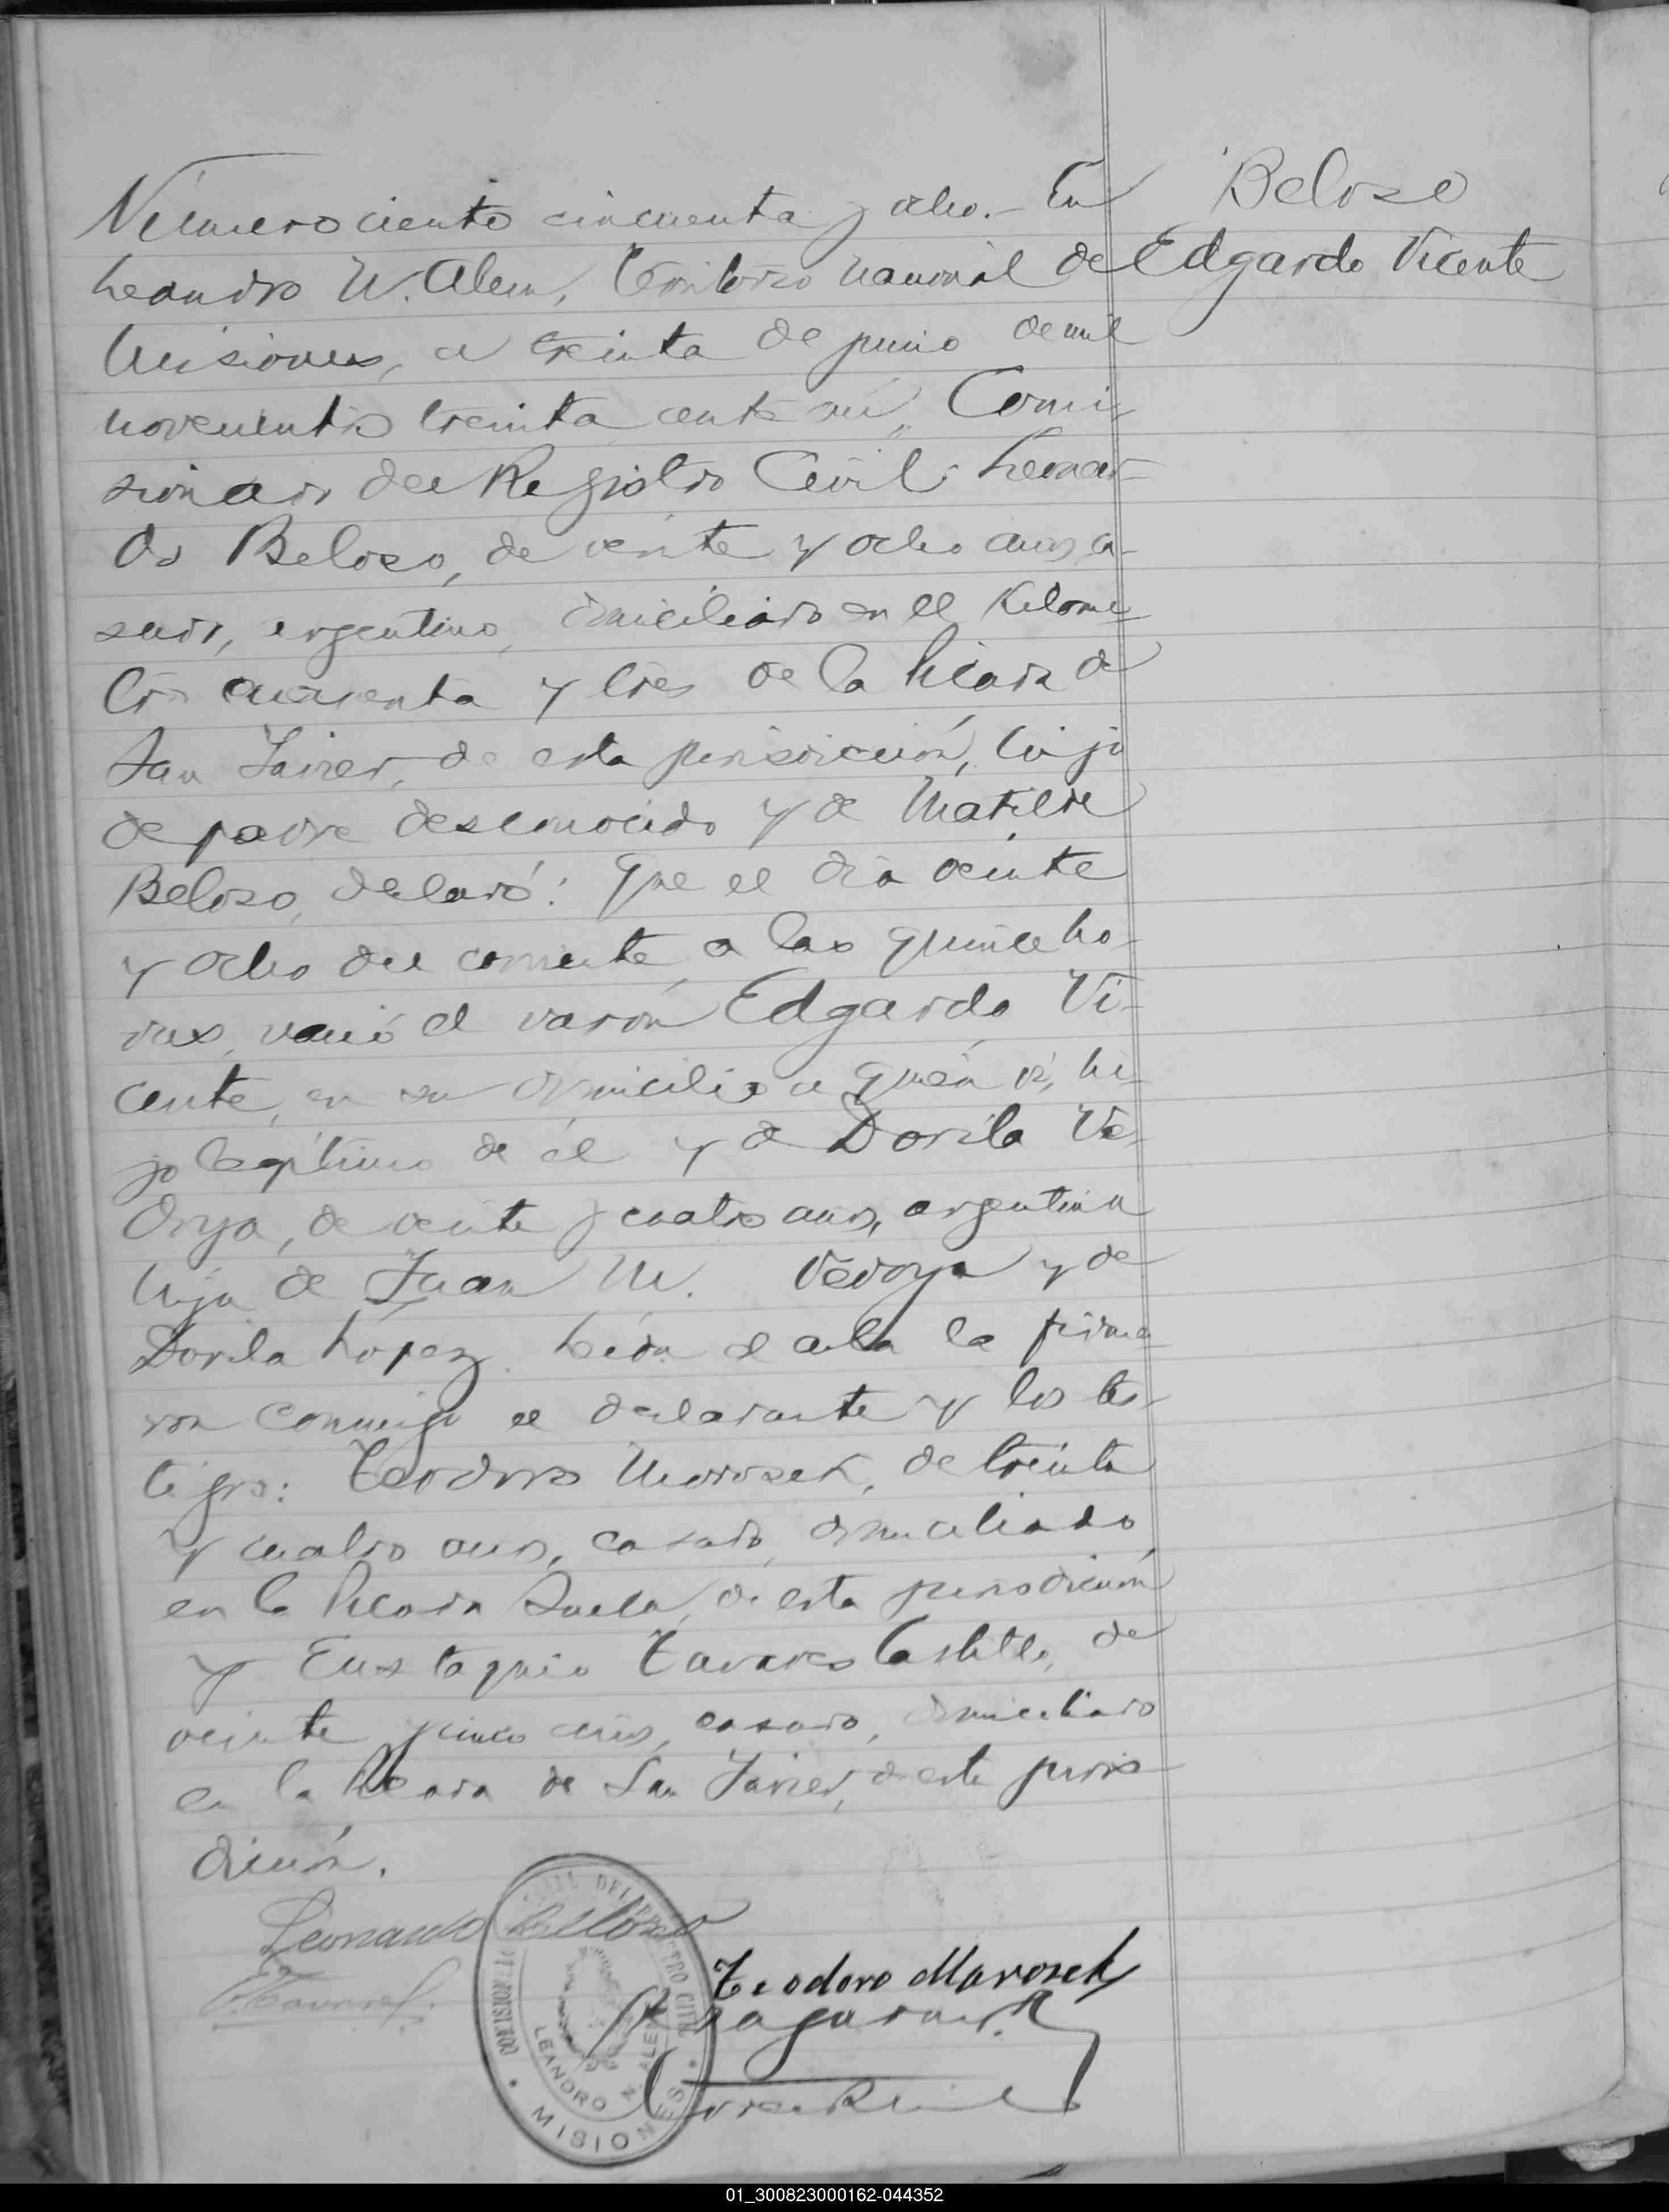 Número ciento cincuenta y ocho.- En
Leandro N. Alem, Territorio Nacional de
Misiones, a treinta de junio de mil
novecientos treinta, ante mí, Comi-
sionado del Registro Civil, Leonar-
do Beloso, de veinte y ocho años, ca-
sado, argentino, domiciliado en el Kilome-
tro cuarenta y tres de la Picada de
San Javier, de esta jurisdicción, hijo
de padre desconocido y de Matilde
Beloso, declaró: Que el día veinte
y ocho del corriente, a las quince ho-
ras, nació el varón Edgardo Vi-
cente, en su domicilio a quién ví, hi-
jo legítimo de él y de Dorila Ve-
doya, de veinte y cuatro años, argentina
hija de Juan M. Vedoya y de
Dorila López. Leída el acta la firma-
ron conmigo el declarante y los tes-
tigos: Teodoro Morosek, de treinta
y cuatro años, casado, domiciliado
en la Picada, de esta jurisdicción
y Eustaquio Tavares Castillo, de
veinte y cinco años, casado, domiciliado
en la Picada de San Javier, de esta juris-
dicción.
Beloso
Edgardo Vicente
Leonardo Beloso
E. Tavares
Teodoro Marosek
COMISIONADO DEL REGISTRO CIVIL
LEANDRO N. ALEM
* MISIONES *
01_300823000162-044352